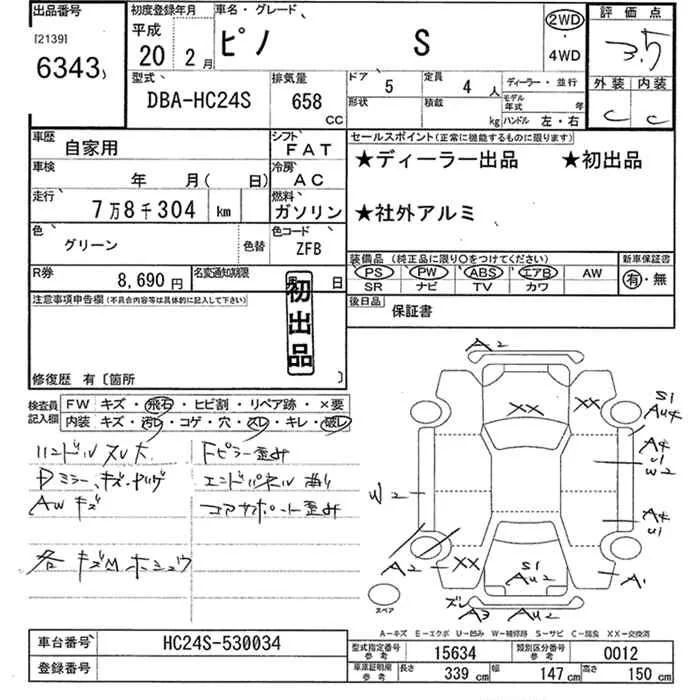 出品番号 初度登録年月 車名・グレード 評価点
[2139] 平成 ピノ S 2WD 3.5
6343 20 2月 4WD
型式 排気量 ドア 5 定員 4人 ディーラー・並行 外装 内装
DBA-HC24S 658 CC 形状 積載 kg モデル年式 年 C C
ハンドル 左・右
車歴 自家用 シフト FAT セールスポイント(正常に機能するものに限ります)
車検 年 月( 日) 冷房 AC ★ディーラー出品 ★初出品
走行 7万8千304 km 燃料 ガソリン ★社外アルミ
色 グリーン 色替 色コード ZFB
装備品 (純正品に限り○をつけてください) 新車保証書
PS PW ABS エアB AW 有・無
SR ナビ TV カワ
R券 8,690円 名変通知期限 月 日 後日品 保証書
注意事項申告欄(不具合内容等は具体的に記入して下さい)
初出品
修復歴 有〔箇所 〕
検査員記入欄 FW キズ・飛石・ヒビ割・リペア跡・×要
内装 キズ・汚レ・コゲ・穴・スレ・キレ・破レ
ハンドルスレ大 Fピラー歪み
Dミラーキズ・ヤブケ エンドパネル曲り
AWキズ コアサポート歪み
各キズMホシュウ
A2
XX XX S1
AU4
A4
U1
W2
W2
A4
U1
A2 XX S1
AU2 A1
スペア ズレ A3 AU2
A-キズ E-エクボ U-凹み W-補修跡 S-サビ C-腐食 XX-交換済
車台番号 HC24S-530034 型式指定番号 参考 15634 類別区分番号 参考 0012
登録番号 車庫証明用 参考 長さ 339cm 幅 147cm 高さ 150cm